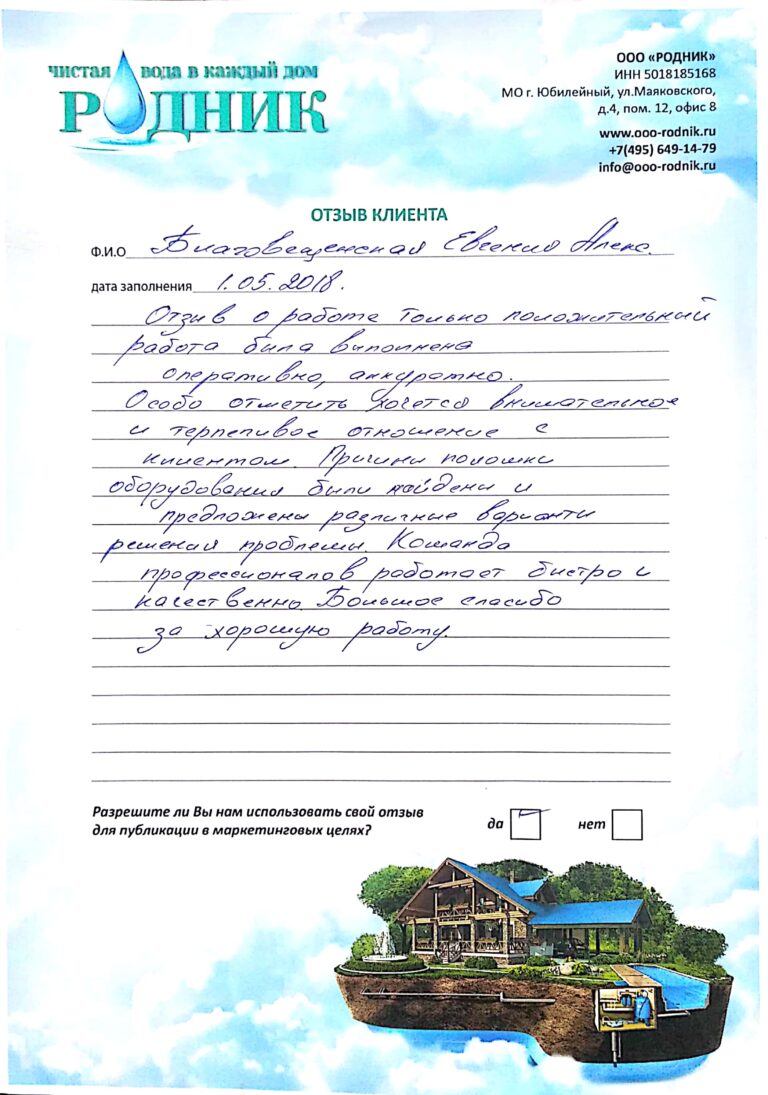 чистая вода в каждый дом
РОДНИК
ООО «РОДНИК»
ИНН 5018185168
МО г. Юбилейный, ул.Маяковского,
д.4, пом. 12, офис 8
www.ooo-rodnik.ru
+7(495) 649-14-79
info@ooo-rodnik.ru
ОТЗЫВ КЛИЕНТА
Ф.И.О Благовещенская Евгения Алекс.
дата заполнения 1.05.2018.
Отзыв о работе только положительный
работа была выполнена
оперативно, аккуратно.
Особо отметить хочется внимательное
и терпеливое отношение с
клиентом. Причины поломки
оборудования были найдены и
предложены различные варианты
решения проблемы. Команда
профессионалов работает быстро и
качественно. Большое спасибо
за хорошую работу.
Разрешите ли Вы нам использовать свой отзыв
для публикации в маркетинговых целях?
да нет